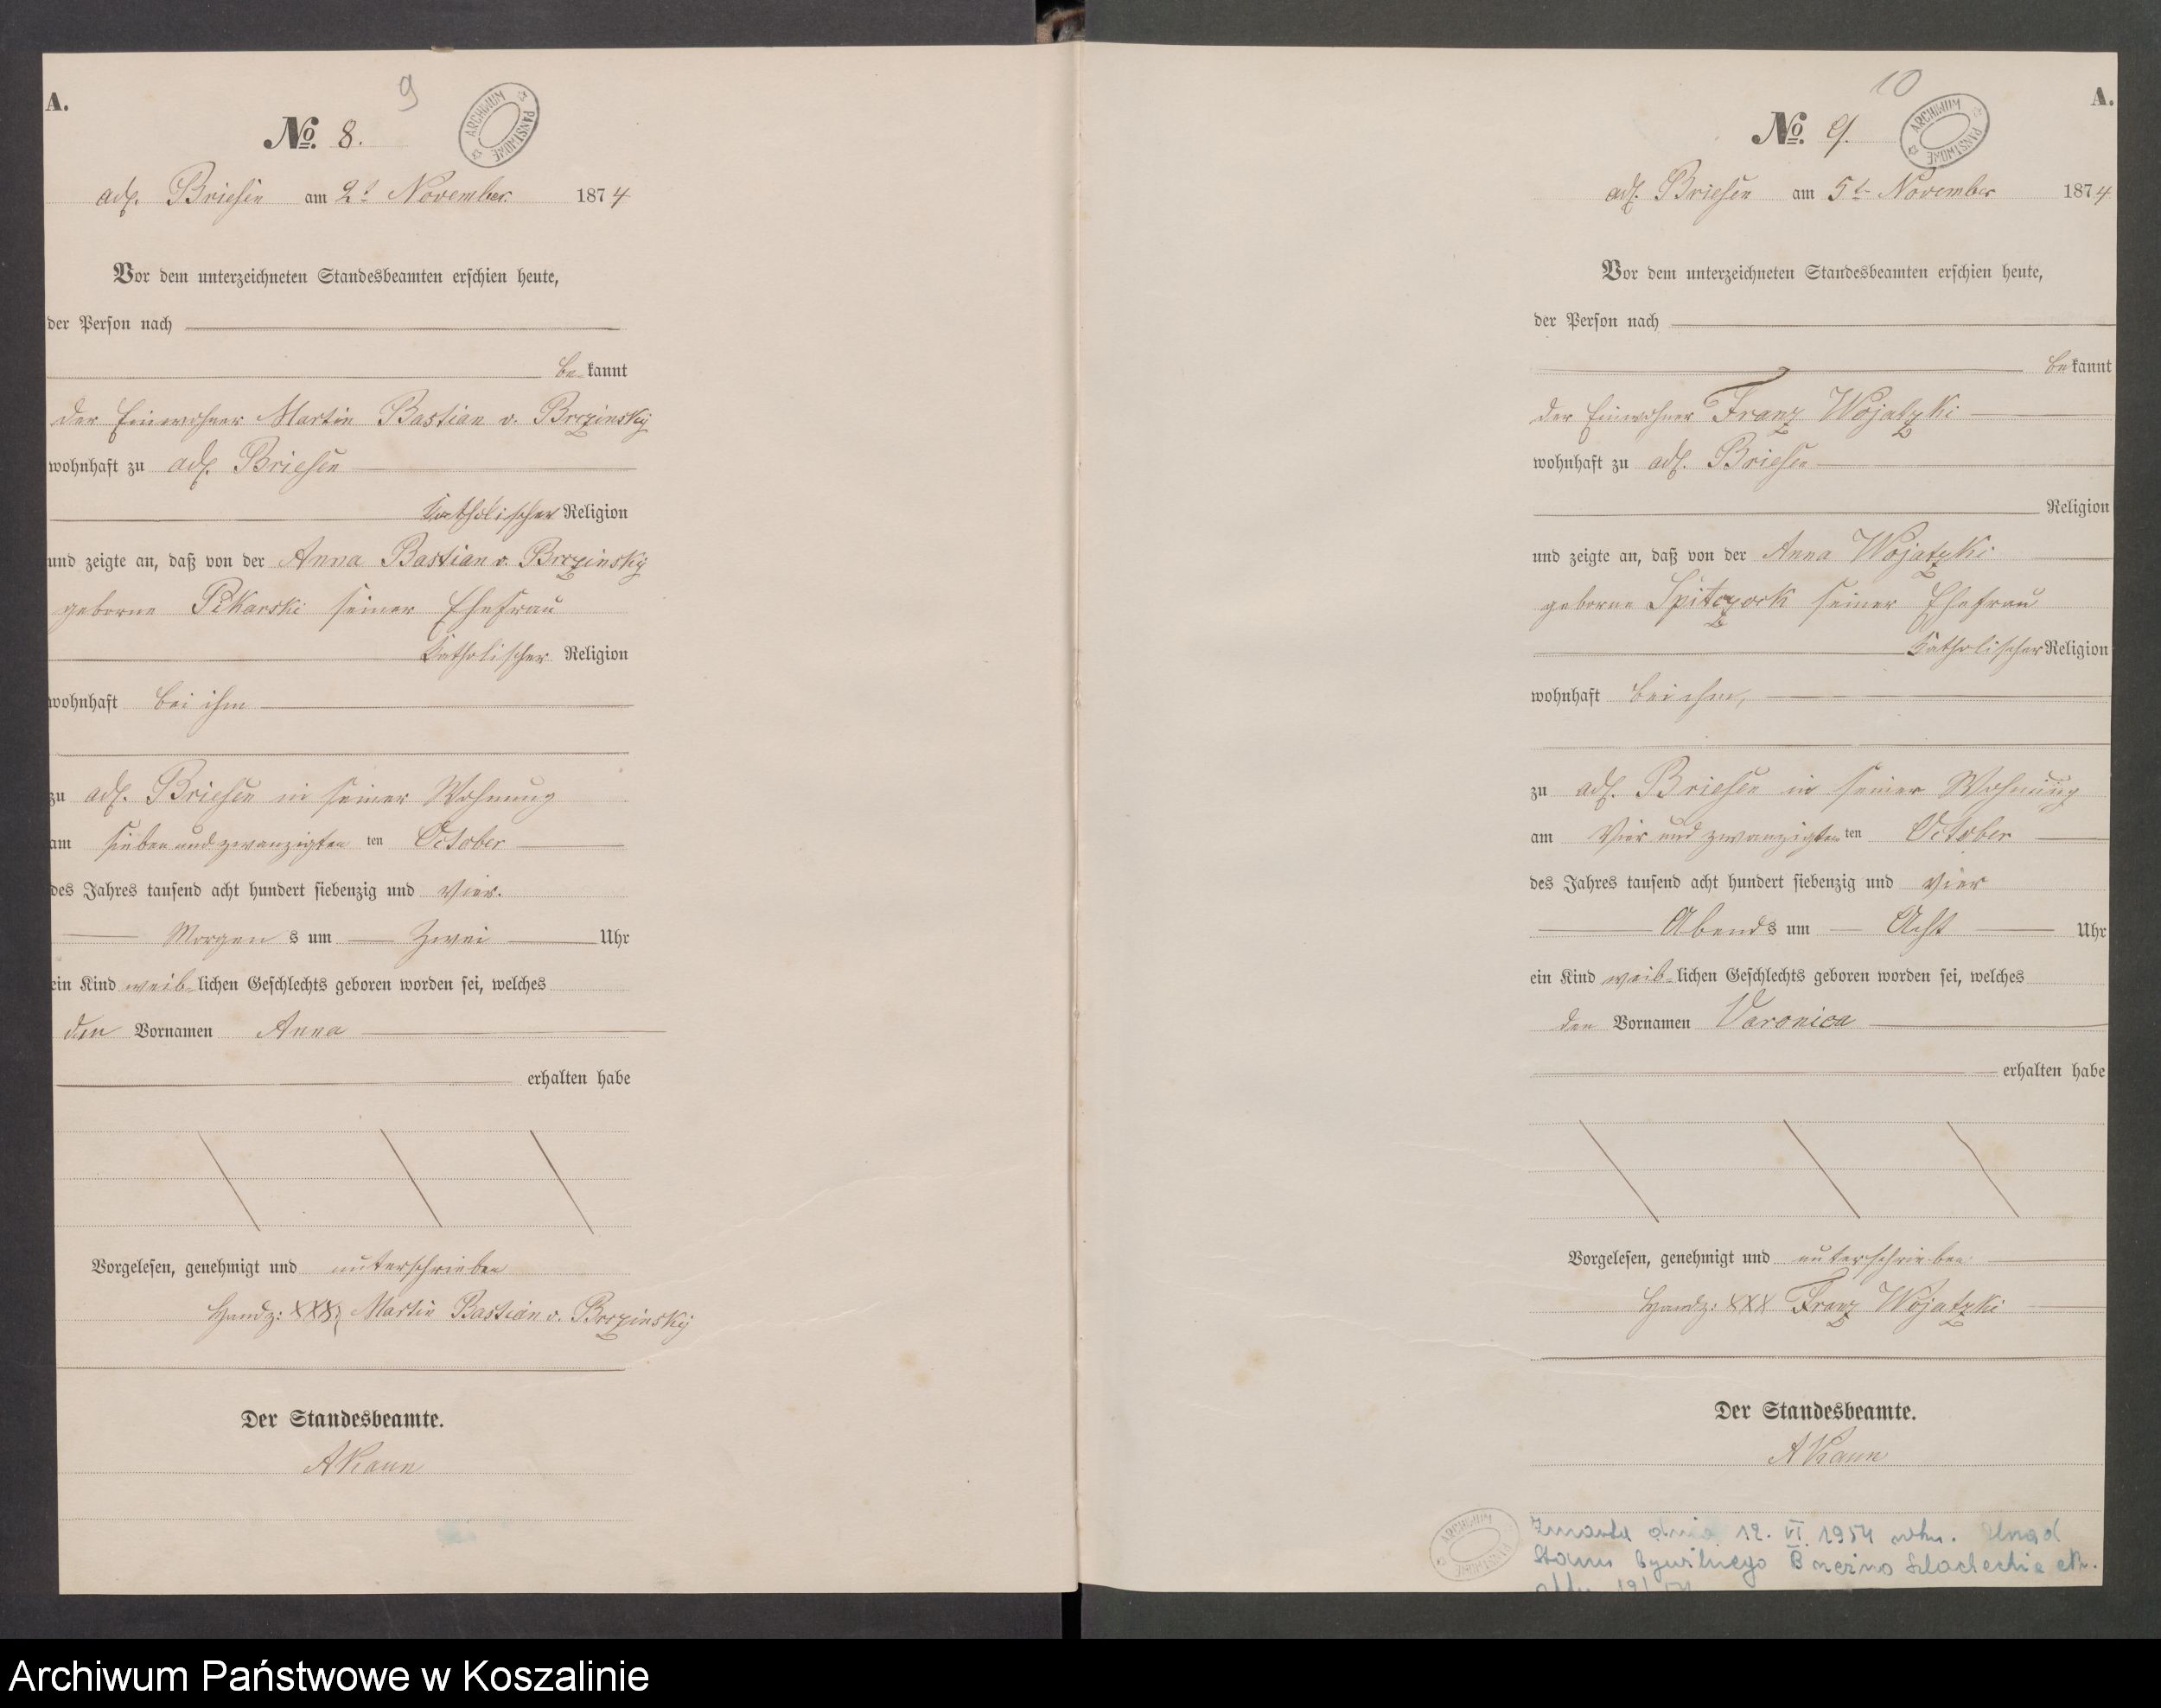 A.
9
No. 8.
ARCHIWUM PAŃSTWOWE
adl. Briesen am 2t November 1874
Vor dem unterzeichneten Standesbeamten erschien heute,
der Person nach
bekannt
der Einwohner Martin Bastian v. Brzezinsky
wohnhaft zu adl. Briesen
katholischer Religion
und zeigte an, daß von der Anna Bastian v. Brzezinsky
geborne Pikarski seiner Ehefrau
katholischer Religion
wohnhaft bei ihm
zu adl. Briesen in seiner Wohnung
am sieben und zwanzigten ten October
des Jahres tausend acht hundert siebenzig und vier.
Morgens um zwei Uhr
ein Kind weiblichen Geschlechts geboren worden sei, welches
den Vornamen Anna
erhalten habe
Vorgelesen, genehmigt und unterschrieben
Handz: XXX Martin Bastian v. Brzezinsky
Der Standesbeamte.
A Kaun
10
A.
No. 9.
ARCHIWUM PAŃSTWOWE
adl. Briesen am 5t November 1874
Vor dem unterzeichneten Standesbeamten erschien heute,
der Person nach
bekannt
der Einwohner Franz Wojatzki
wohnhaft zu adl. Briesen
Religion
und zeigte an, daß von der Anna Wojatzki
geborne Spitczock seiner Ehefrau
katholischer Religion
wohnhaft bei ihm,
zu adl. Briesen in seiner Wohnung
am Vier und zwanzigten ten October
des Jahres tausend acht hundert siebenzig und vier
Abends um Acht Uhr
ein Kind weiblichen Geschlechts geboren worden sei, welches
den Vornamen Varonica
erhalten habe
Vorgelesen, genehmigt und unterschrieben
Handz: XXX Franz Wojatzki
Der Standesbeamte.
A Kaun
ARCHIWUM PAŃSTWOWE
Zmarła dnia 12. VI. 1954 Urząd
Stanu Cywilnego Brzeźno Szlacheckie
Archiwum Państwowe w Koszalinie